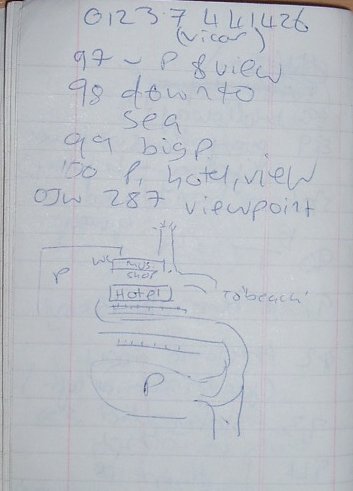 01237 441426
(vicar)
97 ~ P & view
98 down to
sea
99 big P
100 P, hotel, view
OJW 287 viewpoint
WC
MUS
SHOP
P
Hotel
To 'beach'
P